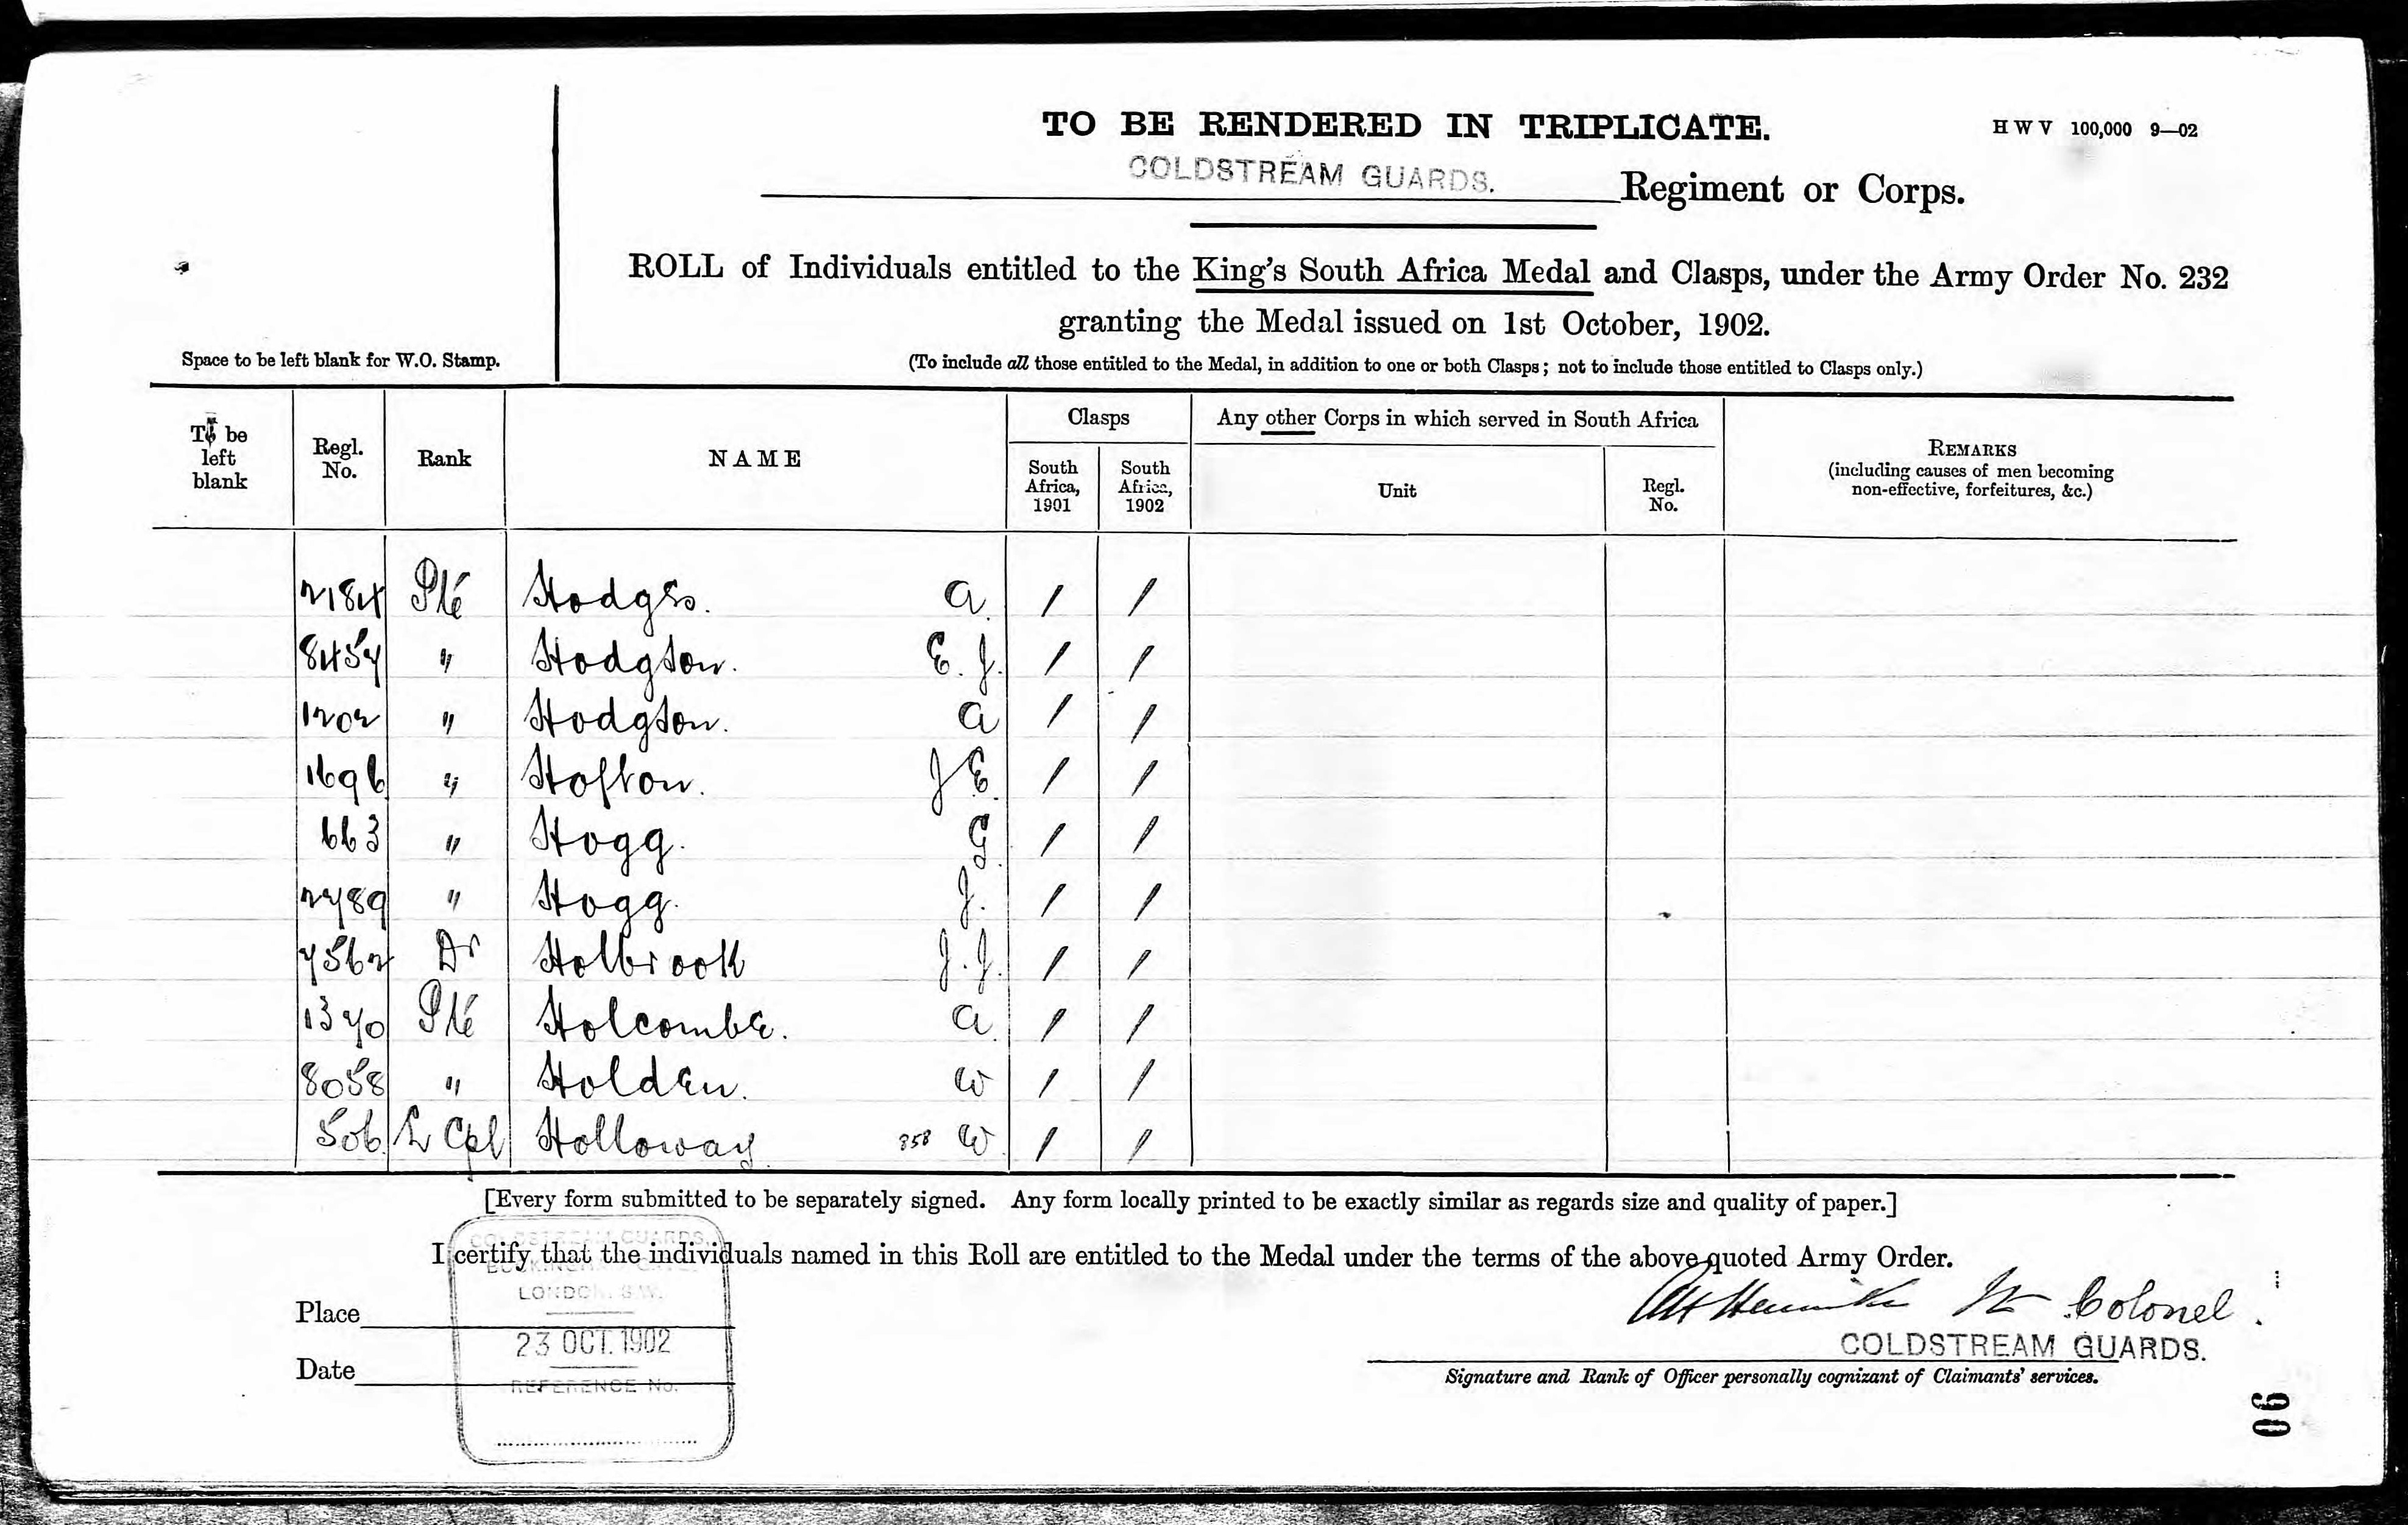 TO BE RENDERED IN TRIPLICATE.
H W V 100,000 9—02
COLDSTREAM GUARDS. Regiment or Corps.
ROLL of Individuals entitled to the King's South Africa Medal and Clasps, under the Army Order No. 232
granting the Medal issued on 1st October, 1902.
Space to be left blank for W.O. Stamp.
(To include all those entitled to the Medal, in addition to one or both Clasps; not to include those entitled to Clasps only.)
To be left blank
Regl. No.
Rank
NAME
Clasps
South Africa, 1901
South Africa, 1902
Any other Corps in which served in South Africa
Unit
Regl. No.
REMARKS
(including causes of men becoming
non-effective, forfeitures, &c.)
2184 Pte Hodges. A. / /
8457 " Hodgson. E. J. / /
1202 " Hodgson. A / /
1696 " Hofton. J E. / /
663 " Hogg. G. / /
2789 " Hogg. J. / /
7562 Dr Holbrook J. J. / /
1370 Pte Holcombe. A. / /
8058 " Holden. W / /
506 L Cpl Holloway 858 W. / /
[Every form submitted to be separately signed. Any form locally printed to be exactly similar as regards size and quality of paper.]
I certify that the individuals named in this Roll are entitled to the Medal under the terms of the above-quoted Army Order.
COLDSTREAM GUARDS.
LONDON. S.W.
Place
23 OCT. 1902
Date
REFERENCE No.
Lt Colonel.
COLDSTREAM GUARDS.
Signature and Rank of Officer personally cognizant of Claimants' services.
90